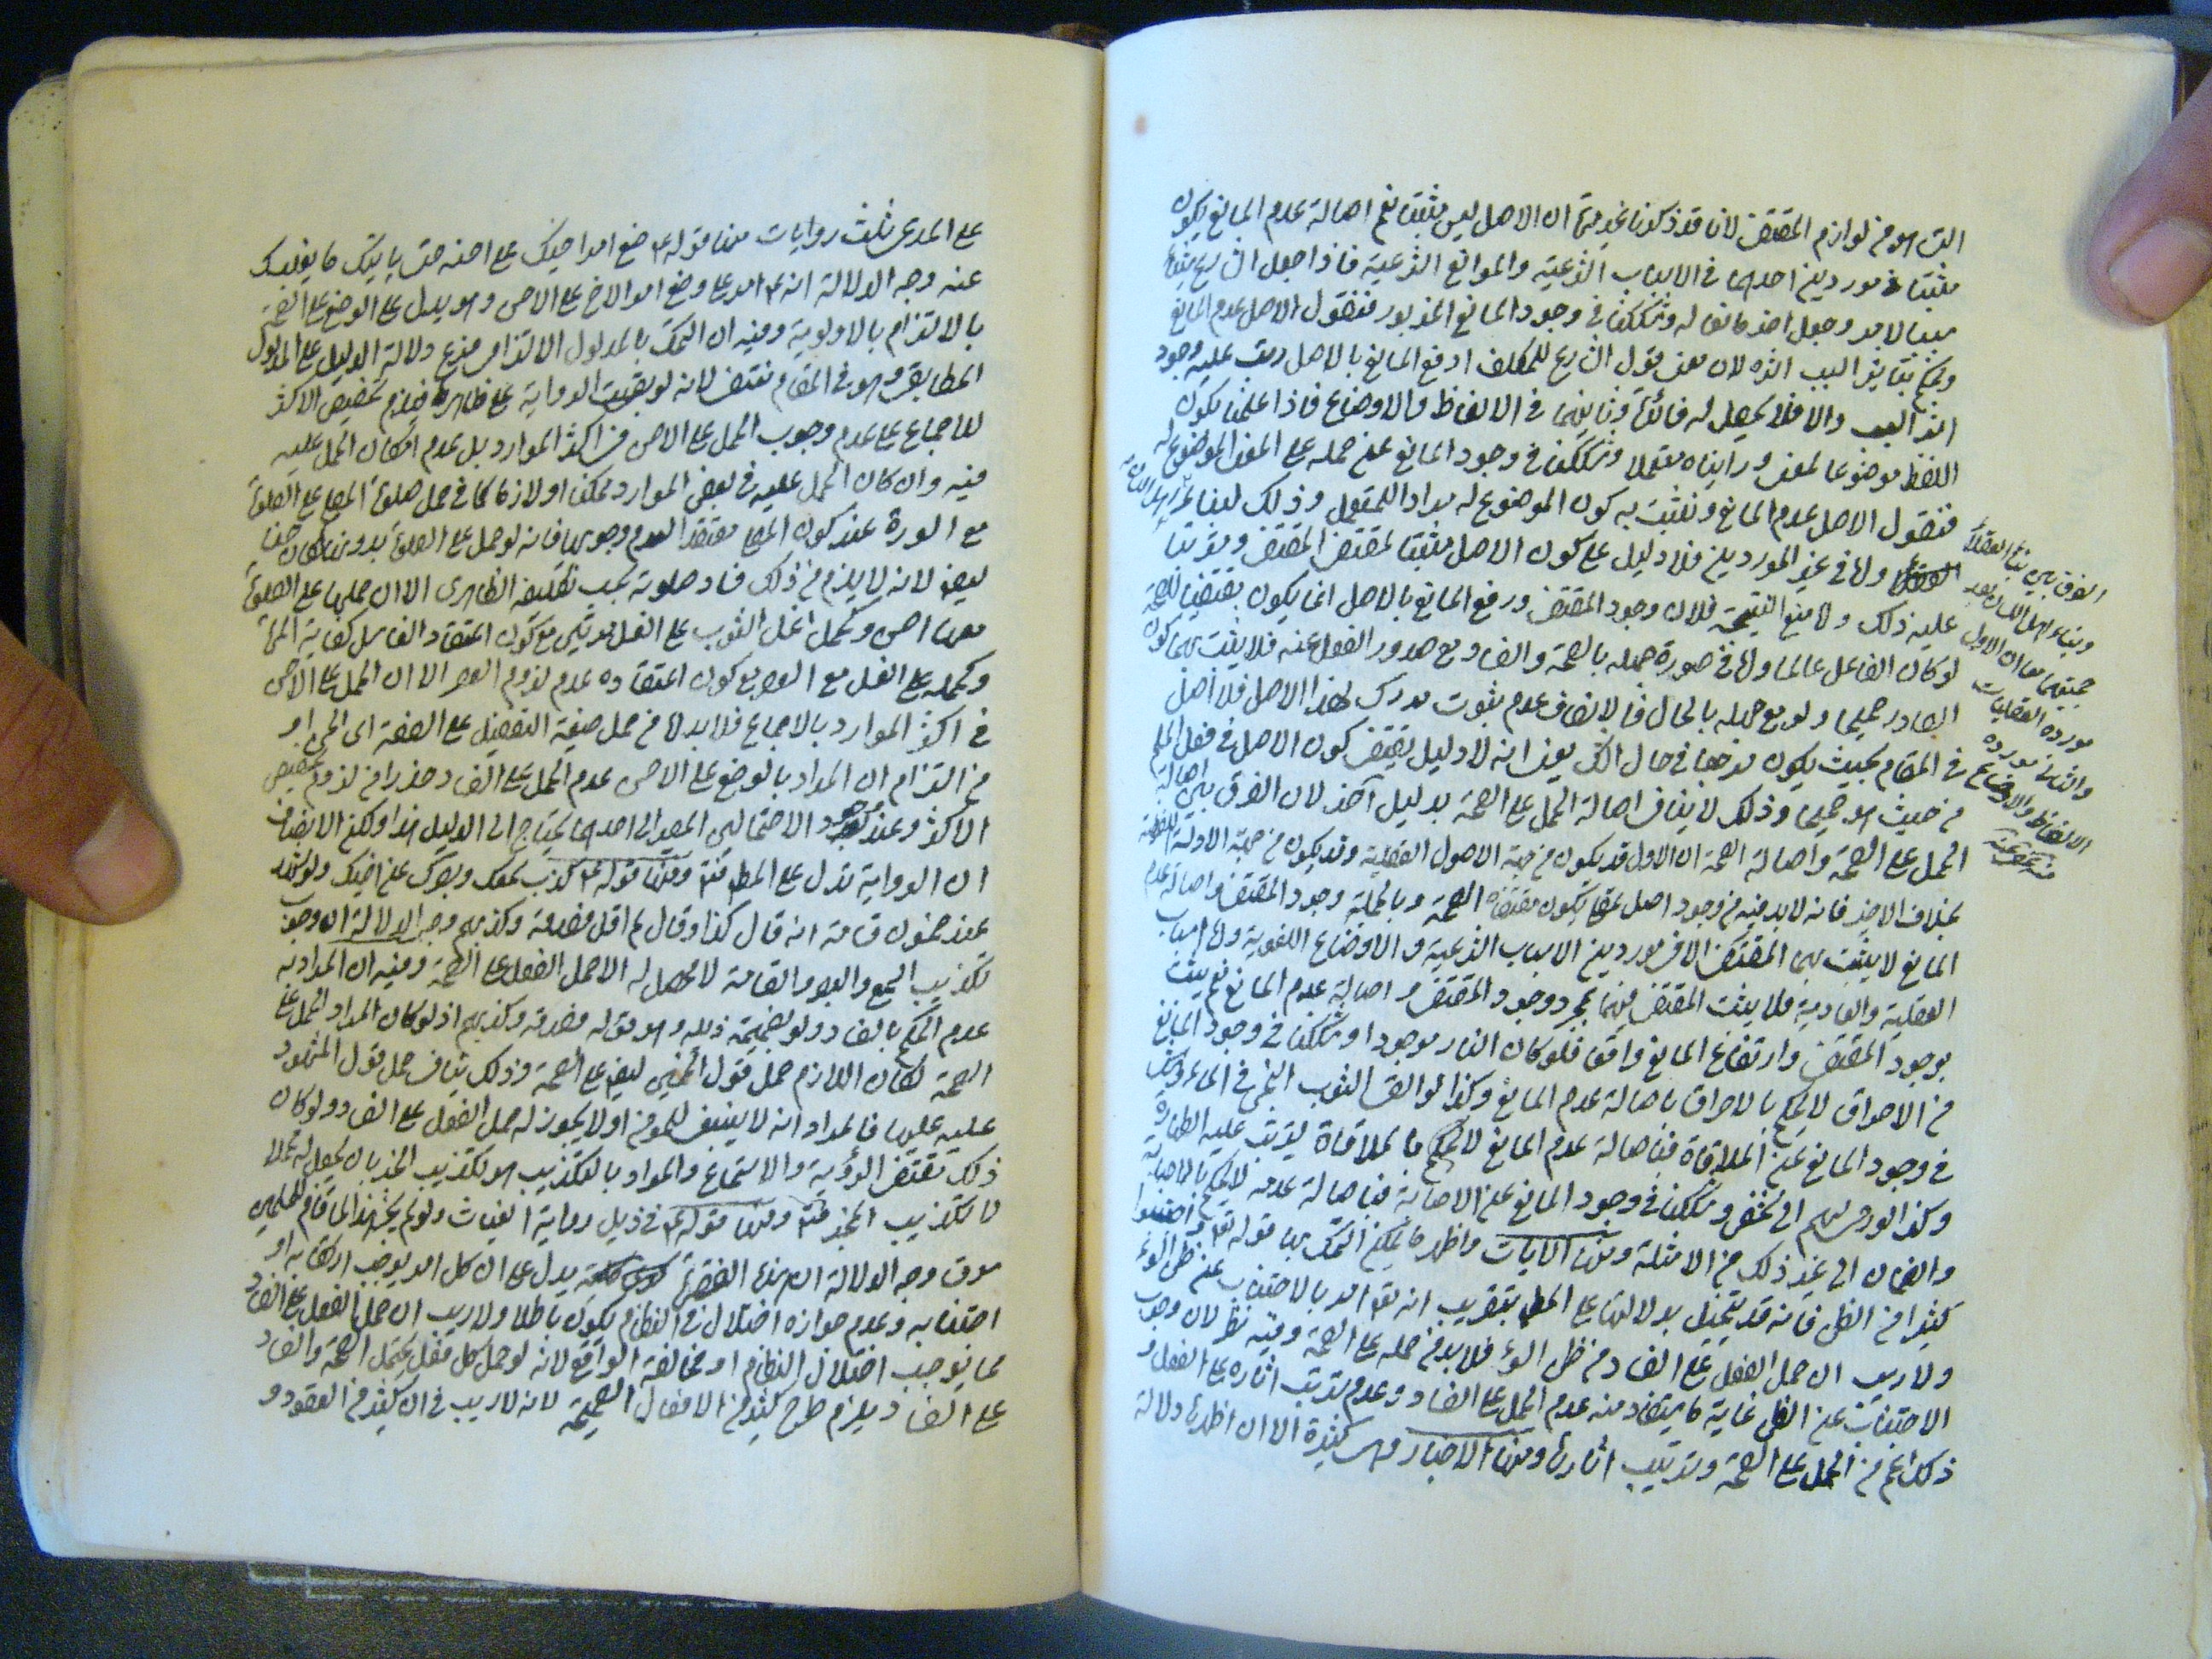 التى هو من لوازم المقتضى لانا قد ذكرنا غير مرة ان الاصل ليس مثبتا نعم اصالة عدم المانع يكون
مثبتا فى موردين احدهما فى الاسباب الشرعية والموانع الشرعية فاذا جعل الشارع شيئا
سببا لامر وجعل اخر مانعا له وشككنا فى وجود المانع المذبور فنقول الاصل عدم المانع
ونحكم بتاثير السبب اثره لان معنى قول الشارع للمكلف ادفع المانع بالاصل رتب عليه وجود
اثر السبب والا فلا يحصل له فائدة وثانيهما فى الالفاظ والاوضاع فاذا علمنا بكون
اللفظ موضوعا لمعنى ورايناه مستعملا وشككنا فى وجود المانع عن حمله على المعنى الموضوع له
فنقول الاصل عدم المانع ونثبت به كون الموضوع له مراد المستعمل وذلك لبناء
واما فى غير الموردين فلا دليل على كون الاصل مثبتا لمقتضى المقتضى وترتب
عليه ذلك واما منع النتيجة فلان وجود المقتضى ورفع المانع بالاصل انما يكون مقتضيا للصحة
لو كان الفاعل عالما واما فى صورة جهله بالصحة والفساد مع صدور الفعل عنه فلا يثبت بهما كون
الصادر صحيحا ولو مع جهله بالحال فالانصاف عدم ثبوت مدرك لهذا الاصل فلا اصل
فى المقام بحيث يكون مرجعا فى حال الشك يعنى انه لا دليل يقتضى كون الاصل فى فعل المسلم
من حيث هو صحيحا وذلك لا ينافى اصالة الحمل على الصحة بدليل آخر لان الفرق بين اصالة
الحمل على الصحة واصالة الصحة ان الاول قد يكون من جهة الاصول العقلية وقد يكون من جهة الادلة اللفظية
بخلاف الاخير فانه لا بد فيه من وجود اصل يكون مقتضاه الصحة وبالجملة وجود المقتضى واصالة عدم
المانع لا يثبت بهما المقتضى الا فى موردين الاسباب الشرعية والاوضاع اللغوية واما اسباب
العقلية والعادية فلا يثبت المقتضى فيهما بمجرد وجود المقتضى واصالة عدم المانع نعم يثبت
بوجود المقتضى وارتفاع المانع واقعا فلو كان النار موجودا وشككنا فى وجود المانع
من الاحراق لا يحكم بالاحراق باصالة عدم المانع وكذا لو القى الثوب النجس فى الماء وشك
فى وجود المانع عن الملاقاة فباصالة عدم المانع لا يحكم بالملاقاة ليترتب عليه الطهارة
وكذا لو رمى سهم الى شخص وشككنا فى وجود المانع عن الاصابة فباصالة عدمه لا يحكم بالاصابة
والضمان الى غير ذلك من الامثلة ومنها الايات واظهر ما يمكن التمسك بها قوله تعالى اجتنبوا
كثيرا من الظن فانه قد يتخيل بدلالتها على المط بتقريب انه تعالى امر بالاجتناب عن ظن السوء
ولا ريب ان حمل الفعل على الفساد من ظن السوء فلا بد من حمله على الصحة وفيه نظر لان وجوب
الاجتناب عن الظن غاية ما يستفاد منه عدم الحمل على الفساد وعدم ترتيب اثاره على الفعل و
ذلك اعم من الحمل على الصحة وترتيب اثارها ومنها الاخبار وهى كثيرة الا ان اظهرها دلالة
الفرق بين بناء العقلاء
وبناء اهل اللسان بعد
حجيتهما معا ان الاول
مورده العقليات
والثانى مورده
الالفاظ والاوضاع
منه عفى عنه
على المدعى ثلث روايات منها قوله ع ضع امر اخيك على احسنه حتى ياتيك ما يغلبك
عنه وجه الدلالة انه ع امر على وضع امر الاخ على الاحسن وهو يدل على الوضع على الصحة
بالالتزام بالاولوية وفيه ان التمسك بالمدلول الالتزامى فرع دلالة الدليل على المدلول
المطابقى وهو فى المقام منتف لانه لو بقيت الرواية على ظاهرها فيلزم تخصيص الاكثر
للاجماع على عدم وجوب الحمل على الاحسن فى اكثر الموارد بل عدم امكان الحمل عليه
فيه وان كان الحمل عليه فى بعض الموارد ممكنا او لازما كما فى حمل صلوة المصلى على الصلوة
مع السورة عند كون المصلى معتقدا لعدم وجوبها فانه لو حمل على الصلوة بدونها كان حسنا
ايضا لانه لا يلزم من ذلك فساد صلوته بحسب تكليفه الظاهرى الا ان حملها على الصلوة
معها احسن وكحمل اغسل الثوب على الغسل مرتين مع كون اعتقاد الغاسل كفاية المرة
وكحمله على الغسل مع العصر مع كون اعتقاده عدم لزوم العصر الا ان الحمل على الاحسن
فى اكثر الموارد بالاجماع فلا بد اما من حمل صيغة التفضيل على الصفة اى الحسن او
من التزام ان المراد بالوضع على الاحسن عدم الحمل على الفساد حذرا من لزوم تخصيص
الاكثر وعند وجود الاحتمالين المصير الى احدهما يحتاج الى الدليل هذا ولكن الانصاف
ان الرواية تدل على المط فتدبر ومنها قوله ع كذب سمعك وبصرك عن اخيك ولو شهد
عندك خمسون قسامة انه قال كذا وقال لم اقل فصدقه وكذبهم وجه الدلالة ان وجوب
تكذيب السمع والبصر والقسامة لا محصل له الا حمل الفعل على الصحة وفيه ان المراد به
عدم الحكم بالفساد ولو بضميمة ذيله وهو قوله فصدقه وكذبهم اذ لو كان المراد الحمل على
الصحة لكان اللازم حمل قول الخمسين ايضا على الصحة وذلك ينافى حمل قول المشهود
عليه عليها فالمراد انه لا ينبغى للمؤمن او لا يجوز له حمل الفعل على الفساد ولو كان
ذلك مقتضى الرؤية والاستماع والمراد بالتكذيب هو تكذيب الخبر بان يجعل له محلا
لا تكذيب المخبر فتدبر ومنها قوله ع فى ذيل رواية الغياث ولو لم يجز هذا لما قام للمسلمين
سوق وجه الدلالة ان هذه الفقرة يدل على ان كل امر يوجب ارتكابه او
اجتنابه وعدم جوازه اختلال فى النظام يكون باطلا ولا ريب ان حمل الفعل على الفساد
مما يوجب اختلال النظام او مخالفة الواقع لانه لو حمل كل فعل يحتمل الصحة والفساد
على الفساد يلزم طرح كثير من الافعال الصحيحة لانه لا ريب فى ان كثير من العقود و